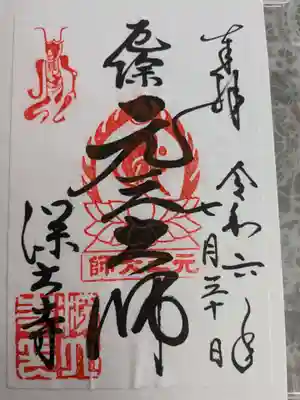 奉拝
令和六年
七月三十日
厄除
元三大師
師大三元
深大寺